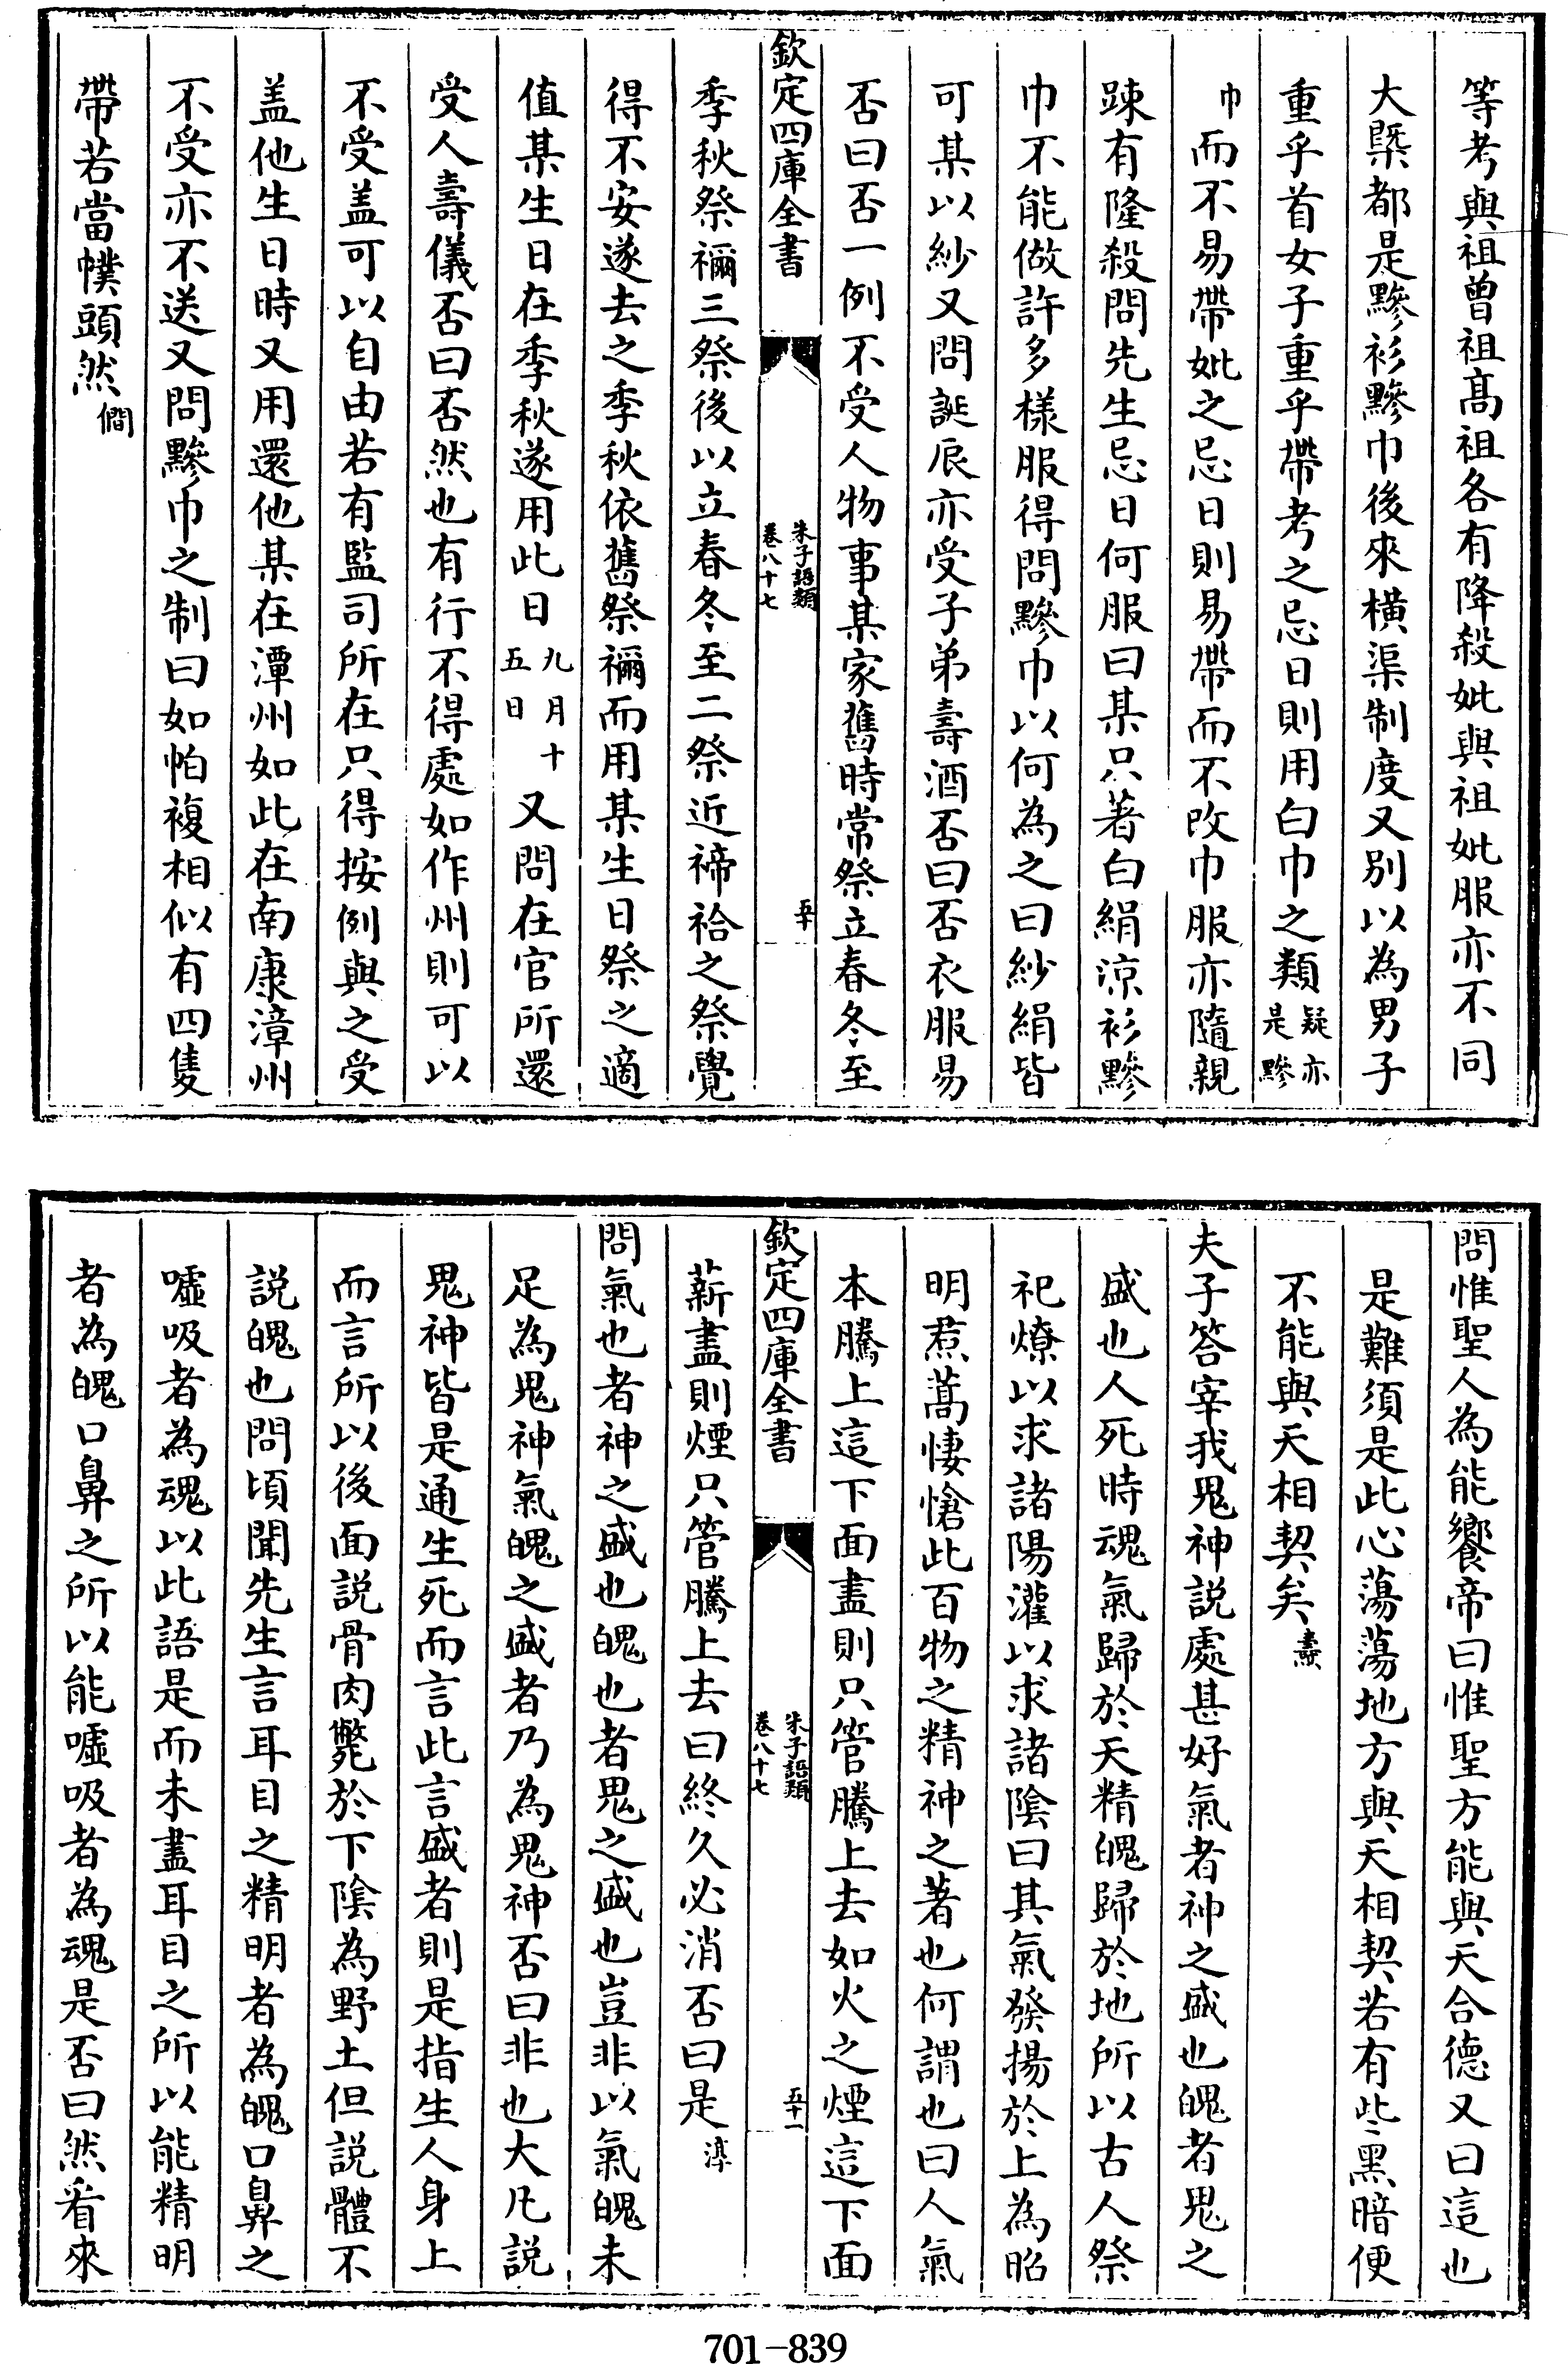 等考與祖曾祖髙祖各有降殺妣與祖妣服亦不同
大槩都是黲衫黲巾後來横渠制度又别以為男子
重乎首女子重乎帶考之忌日則用白巾之類疑亦是黲
巾而不易帶妣之忌日則易帶而不改巾服亦隨親
踈有隆殺問先生忌日何服曰某只著白絹涼衫黲
巾不能做許多樣服得問黲巾以何為之曰紗絹皆
可某以紗又問誕辰亦受子弟壽酒否曰否衣服易
否曰否一例不受人物事某家舊時常祭立春冬至
欽定四庫全書
朱子語類
卷八十七
五十
季秋祭禰三祭後以立春冬至二祭近禘祫之祭覺
得不安遂去之季秋依舊祭禰而用某生日祭之適
值某生日在季秋遂用此日九月十五日又問在官所還
受人壽儀否曰否然也有行不得處如作州則可以
不受盖可以自由若有監司所在只得按例與之受
盖他生日時又用還他某在潭州如此在南康漳州
不受亦不送又問黲巾之制曰如帕複相似有四隻
帶若當幞頭然僩
問惟聖人為能饗帝曰惟聖方能與天合德又曰這也
是難須是此心蕩蕩地方與天相契若有些黒暗便
不能與天相契矣燾
夫子答宰我鬼神説處甚好氣者神之盛也魄者鬼之
盛也人死時魂氣歸於天精魄歸於地所以古人祭
祀燎以求諸陽灌以求諸陰曰其氣發揚於上為昭
明焄蒿悽愴此百物之精神之著也何謂也曰人氣
本騰上這下面盡則只管騰上去如火之煙這下面
欽定四庫全書
朱子語類
卷八十七
五十一
薪盡則煙只管騰上去曰終久必消否曰是淳
問氣也者神之盛也魄也者鬼之盛也豈非以氣魄未
足為鬼神氣魄之盛者乃為鬼神否曰非也大凡説
鬼神皆是通生死而言此言盛者則是指生人身上
而言所以後面説骨肉斃於下隂為野土但説體不
説魄也問頃聞先生言耳目之精明者為魄口鼻之
噓吸者為魂以此語是而未盡耳目之所以能精明
者為魄口鼻之所以能噓吸者為魂是否曰然㸔來
701-839